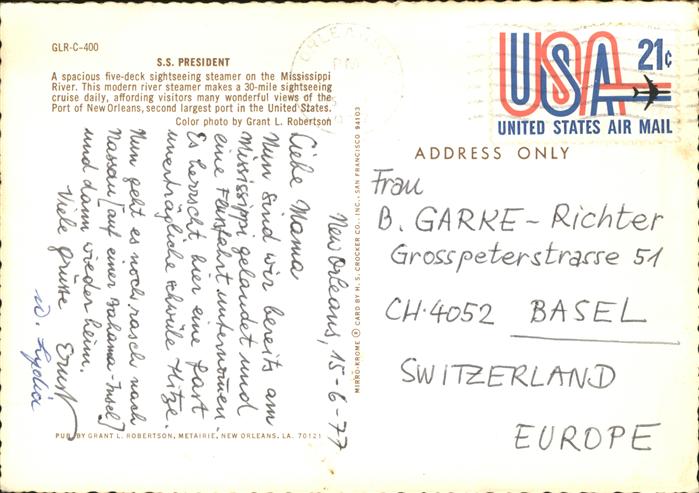 GLR-C-400
S.S. PRESIDENT
A spacious five-deck sightseeing steamer on the Mississippi
River. This modern river steamer makes a 30-mile sightseeing
cruise daily, affording visitors many wonderful views of the
Port of New Orleans, second largest port in the United States.
Color photo by Grant L. Robertson
USA 21c
UNITED STATES AIR MAIL
ADDRESS ONLY
Frau
B. GARKE-Richter
Grosspeterstrasse 51
CH·4052 BASEL
SWITZERLAND
EUROPE
New Orleans, 15-6-77
Liebe Mama
Nun sind wir bereits am
Mississippi gelandet und
eine Flussfahrt unternommen.
Es herrscht hier eine fast
unerträgliche schwüle Hitze.
Nun geht es noch rasch nach
Nassau [auf einer Bahama-Insel]
und dann wieder heim.
Viele Grüsse Ernst
u. Lydia
MIRRO-KROME ® CARD BY H. S. CROCKER CO., INC., SAN FRANCISCO 94103
PUB. BY GRANT L. ROBERTSON, METAIRIE, NEW ORLEANS, LA. 70121